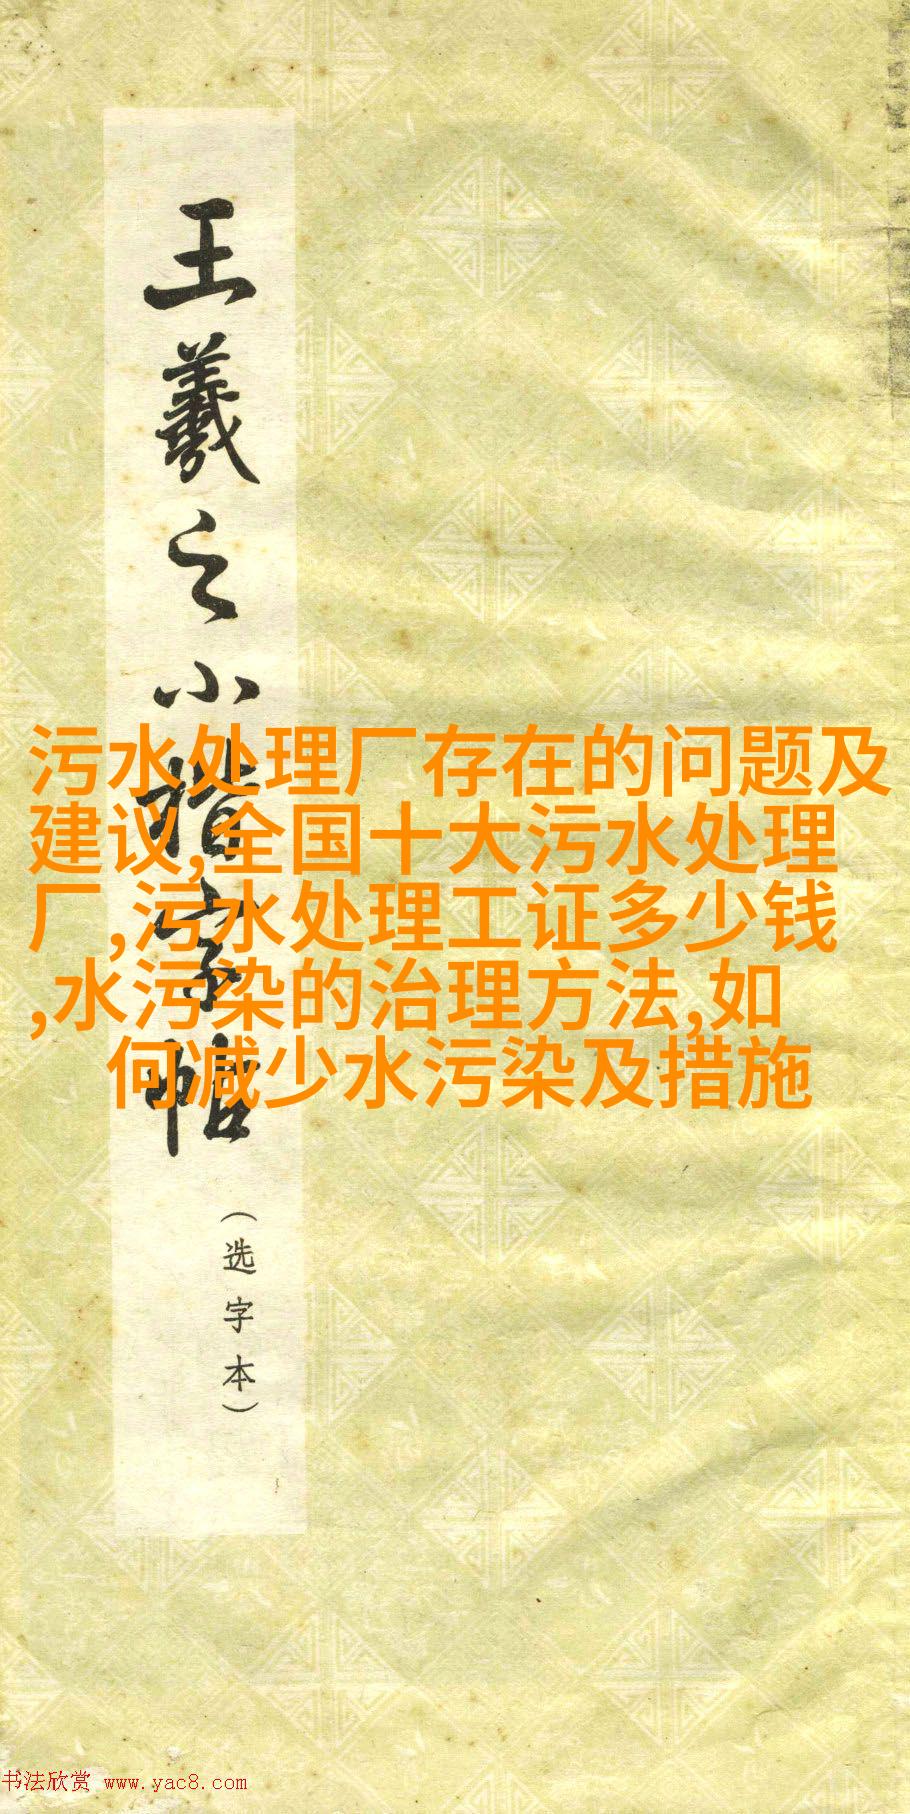 王羲之小楷字帖
（选字本）
污水处理厂存在的问题及
建议,全国十大污水处理
厂,污水处理工证多少钱
,水污染的治理方法,如
何减少水污染及措施
书法欣赏 www.yac8.com